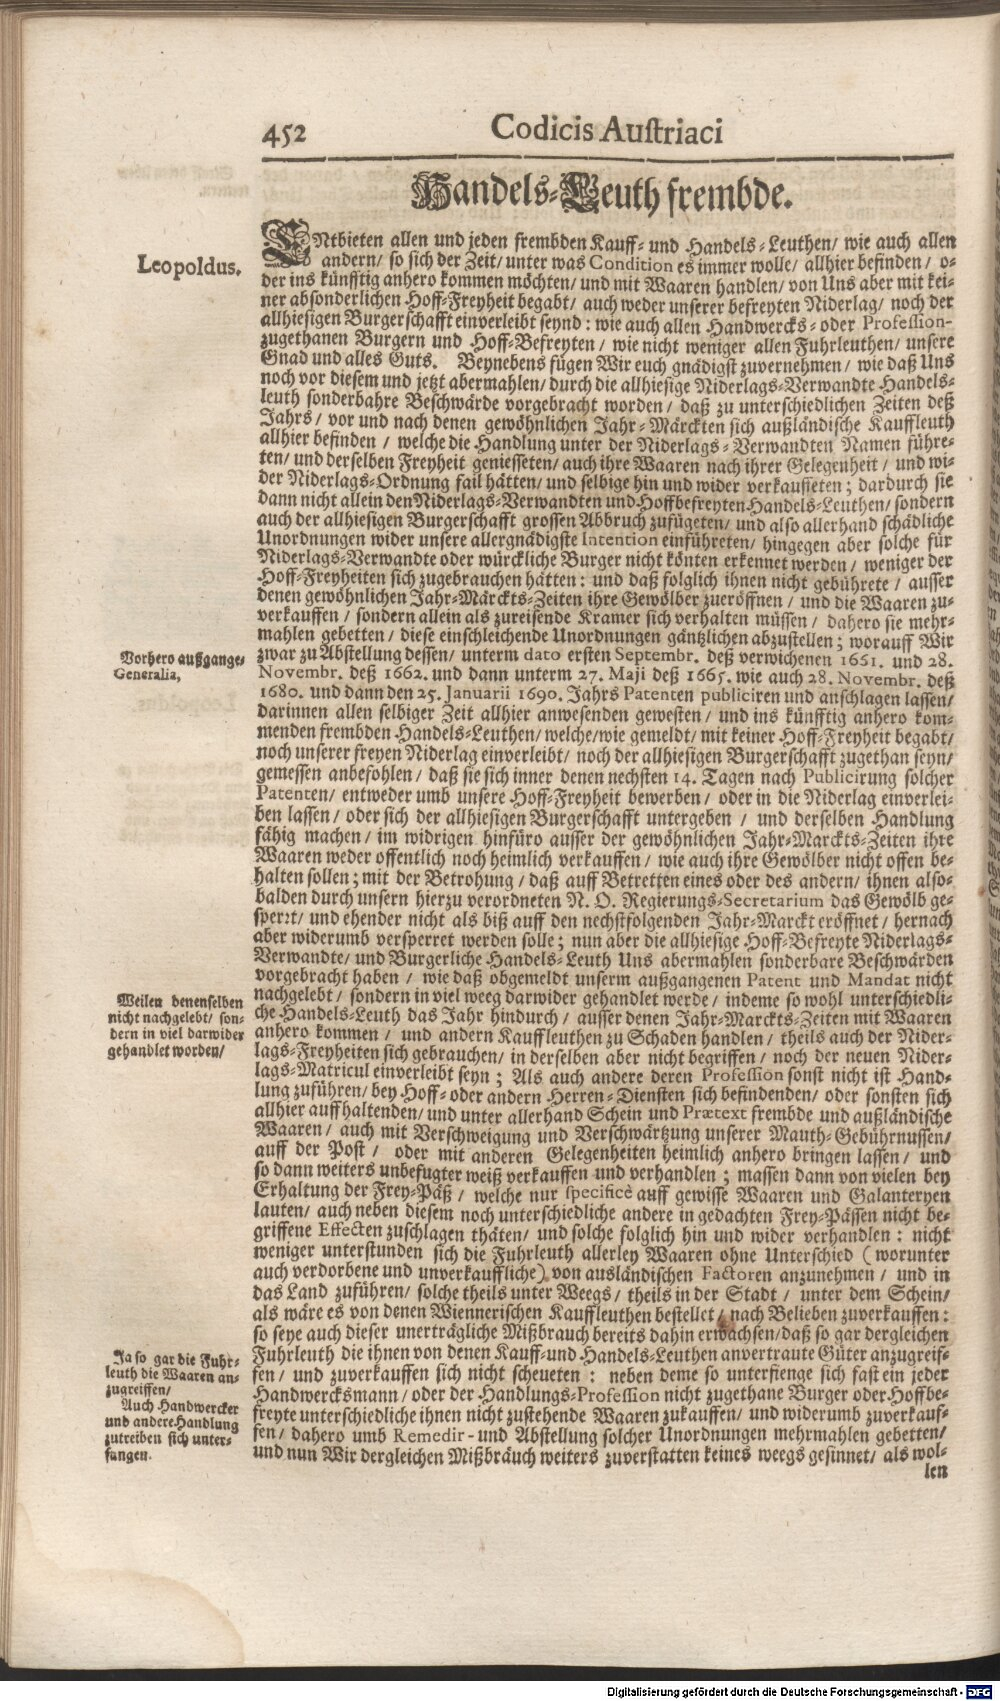 452 Codicis Austriaci
Handels-Leuth frembde.
Leopoldus.
ENtbieten allen und jeden frembden Kauff- und Handels-Leuthen/ wie auch allen
andern/ so sich der Zeit/ unter was Condition es immer wolle/ allhier befinden/ o-
der ins künfftig anhero kommen möchten/ und mit Waaren handlen/ von Uns aber mit kei-
ner absonderlichen Hoff-Freyheit begabt/ auch weder unserer befreyten Niderlag/ noch der
allhiesigen Burgerschafft einverleibt seynd: wie auch allen Handwercks- oder Profession-
zugethanen Burgern und Hoff-Befreyten/ wie nicht weniger allen Fuhrleuthen/ unsere
Gnad und alles Guts. Beynebens fügen Wir euch gnädigst zuvernehmen/ wie daß Uns
noch vor diesem und jetzt abermahlen/ durch die allhiesige Niderlags-Verwandte Handels-
leuth sonderbahre Beschwärde vorgebracht worden/ daß zu unterschiedlichen Zeiten deß
Jahrs/ vor und nach denen gewöhnlichen Jahr-Märckten sich außländische Kauffleuth
allhier befinden/ welche die Handlung unter der Niderlags-Verwandten Namen führe-
ten/ und derselben Freyheit geniesseten/ auch ihre Waaren nach ihrer Gelegenheit/ und wi-
der Niderlags-Ordnung fail hätten/ und selbige hin und wider verkauffeten; dardurch sie
dann nicht allein den Niderlags-Verwandten und Hoffbefreyten Handels-Leuthen/ sondern
auch der allhiesigen Burgerschafft grossen Abbruch zufügeten/ und also allerhand schädliche
Unordnungen wider unsere allergnädigste Intention einführeten/ hingegen aber solche für
Niderlags-Verwandte oder würckliche Burger nicht könten erkennet werden/ weniger der
Hoff-Freyheiten sich zugebrauchen hätten: und daß folglich ihnen nicht gebührete/ ausser
denen gewöhnlichen Jahr-Märckts-Zeiten ihre Gewölber zueröffnen/ und die Waaren zu-
verkauffen/ sondern allein als zureisende Kramer sich verhalten müssen/ dahero sie mehr-
mahlen gebetten/ diese einschleichende Unordnungen gäntzlichen abzustellen; worauff Wir
Vorhero außgange-
Generalia,
zwar zu Abstellung dessen/ unterm dato ersten Septembr. deß verwichenen 1661. und 28.
Novembr. deß 1662. und dann unterm 27. Maji deß 1665. wie auch 28. Novembr. deß
1680. und dann den 25. Januarii 1690. Jahrs Patenten publiciren und anschlagen lassen/
darinnen allen selbiger Zeit allhier anwesenden gewesten/ und ins künfftig anhero kom-
menden frembden Handels-Leuthen/ welche/ wie gemeldt/ mit keiner Hoff-Freyheit begabt/
noch unserer freyen Niderlag einverleibt/ noch der allhiesigen Burgerschafft zugethan seyn/
gemessen anbefohlen/ daß sie sich inner denen nechsten 14. Tagen nach Publicirung solcher
Patenten/ entweder umb unsere Hoff-Freyheit bewerben/ oder in die Niderlag einverlei-
ben lassen/ oder sich der allhiesigen Burgerschafft untergeben/ und derselben Handlung
fähig machen/ im widrigen hinfüro ausser der gewöhnlichen Jahr-Marckts-Zeiten ihre
Waaren weder offentlich noch heimlich verkauffen/ wie auch ihre Gewölber nicht offen be-
halten sollen; mit der Betrohung/ daß auff Betretten eines oder des andern/ ihnen also-
balden durch unsern hierzu verordneten N. O. Regierungs-Secretarium das Gewölb ge-
sperrt/ und ehender nicht als biß auff den nechstfolgenden Jahr-Marckt eröffnet/ hernach
aber widerumb versperret werden solle; nun aber die allhiesige Hoff-Befreyte Niderlags-
Verwandte/ und Burgerliche Handels-Leuth Uns abermahlen sonderbare Beschwärden
vorgebracht haben/ wie daß obgemeldt unserm außgangenen Patent und Mandat nicht
Weilen denenselben
nicht nachgelebt/ son-
dern in viel darwider
gehandlet worden/
nachgelebt/ sondern in viel weeg darwider gehandlet werde/ indeme so wohl unterschiedli-
che Handels-Leuth das Jahr hindurch/ ausser denen Jahr-Marckts-Zeiten mit Waaren
anhero kommen/ und andern Kauffleuthen zu Schaden handlen/ theils auch der Nider-
lags-Freyheiten sich gebrauchen/ in derselben aber nicht begriffen/ noch der neuen Nider-
lags-Matricul einverleibt seyn; Als auch andere deren Profession sonst nicht ist Hand-
lung zuführen/ bey Hoff- oder andern Herren-Diensten sich befindenden/ oder sonsten sich
allhier auffhaltenden/ und unter allerhand Schein und Prætext frembde und außländische
Waaren/ auch mit Verschweigung und Verschwärtzung unserer Mauth-Gebührnussen/
auff der Post/ oder mit anderen Gelegenheiten heimlich anhero bringen lassen/ und
so dann weiters unbefugter weiß verkauffen und verhandlen; massen dann von vielen bey
Erhaltung der Frey-Päß/ welche nur specificè auff gewisse Waaren und Galanteryen
lauten/ auch neben diesem noch unterschiedliche andere in gedachten Frey-Pässen nicht be-
griffene Effecten zuschlagen thäten/ und solche folglich hin und wider verhandlen: nicht
weniger unterstunden sich die Fuhrleuth allerley Waaren ohne Unterschied (worunter
auch verdorbene und unverkauffliche) von ausländischen Factoren anzunehmen/ und in
das Land zuführen/ solche theils unter Weegs/ theils in der Stadt/ unter dem Schein/
als wäre es von denen Wiennerischen Kauffleuthen bestellet/ nach Belieben zuverkauffen:
so seye auch dieser unerträgliche Mißbrauch bereits dahin erwachsen/ daß so gar dergleichen
Ja so gar die Fuhr-
leuth die Waaren an-
zugreiffen/
Auch Handwercker
und andere Handlung
zutreiben sich unter-
fangen.
Fuhrleuth die ihnen von denen Kauff- und Handels-Leuthen anvertraute Güter anzugreif-
fen/ und zuverkauffen sich nicht scheueten: neben deme so unterfienge sich fast ein jeder
Handwercksmann/ oder der Handlungs-Profession nicht zugethane Burger oder Hoffbe-
freyte unterschiedliche ihnen nicht zustehende Waaren zukauffen/ und widerumb zuverkauf-
fen/ dahero umb Remedir- und Abstellung solcher Unordnungen mehrmahlen gebetten/
und nun Wir dergleichen Mißbräuch weiters zuverstatten keines weegs gesinnet/ als wol-
len
Digitalisierung gefördert durch die Deutsche Forschungsgemeinschaft - DFG